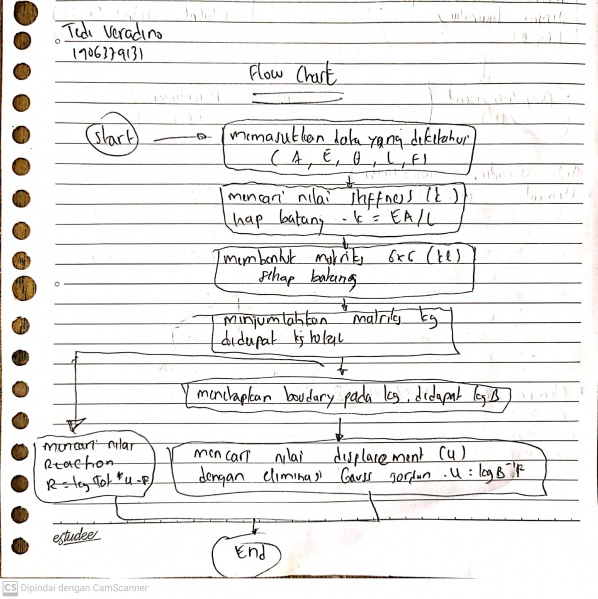 Tedi Veradino
1906379131
Flow Chart
Start
memasukkan data yang diketahui
( A, E, θ, L, F)
mencari nilai stiffness (k)
tiap batang . k = EA/L
membentuk matriks 6x6 (kl)
setiap batang
menjumlahkan matriks kg
didapat kg total
menetapkan boudary pada kg, didapat kgB
mencari nilai
Reaction
R = kgTot * u - F
mencari nilai displacement (u)
dengan eliminasi Gauss jordan . u = kgB⁻¹F
End
estudee
CS Dipindai dengan CamScanner